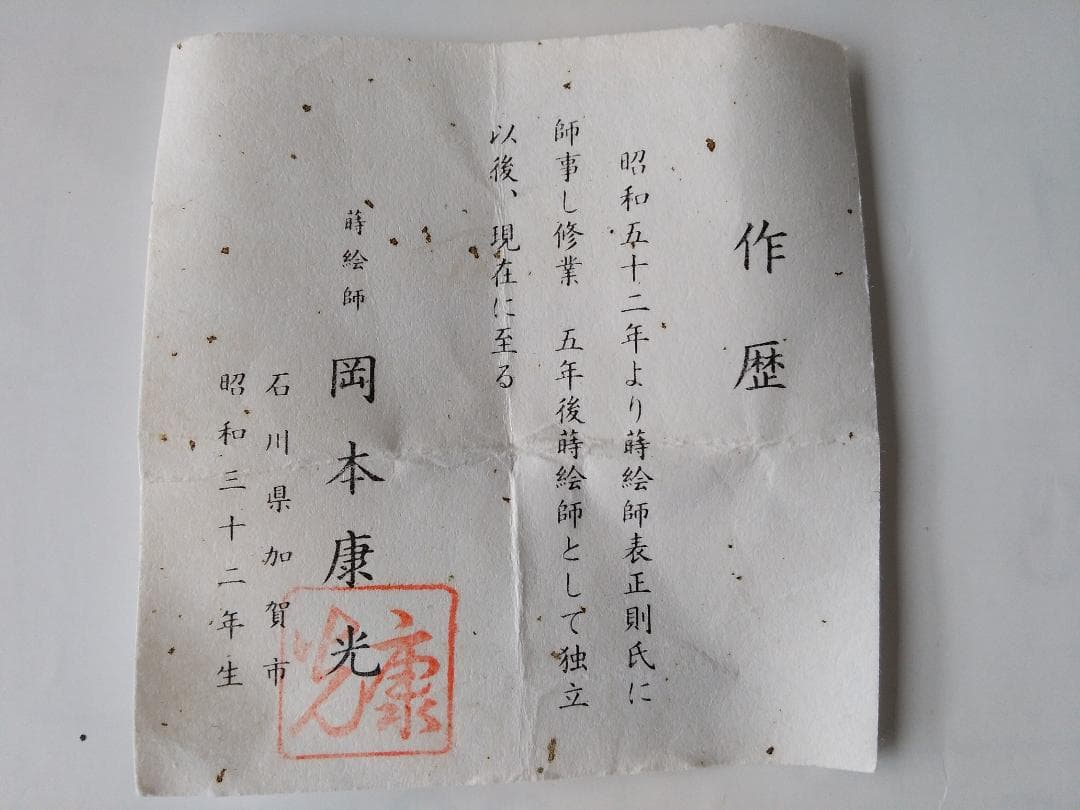 作歴
昭和五十二年より蒔絵師表正則氏に
師事し修業 五年後蒔絵師として独立
以後、現在に至る
蒔絵師 岡本康光
石川県加賀市
昭和三十二年生
康光